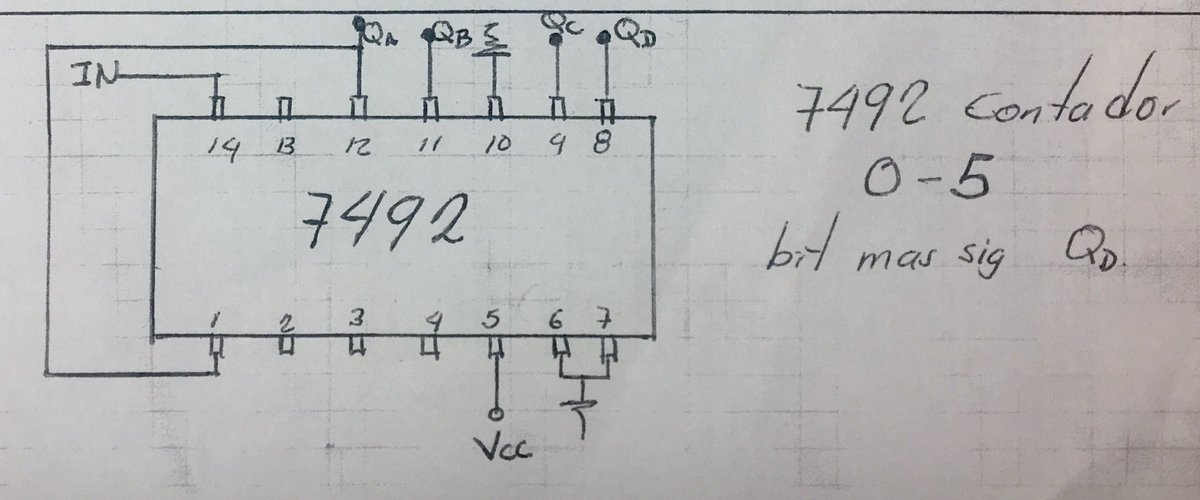 QA QB QC QD
IN
14 13 12 11 10 9 8
7492
1 2 3 4 5 6 7
Vcc
7492 contador
0-5
bit mas sig QD.